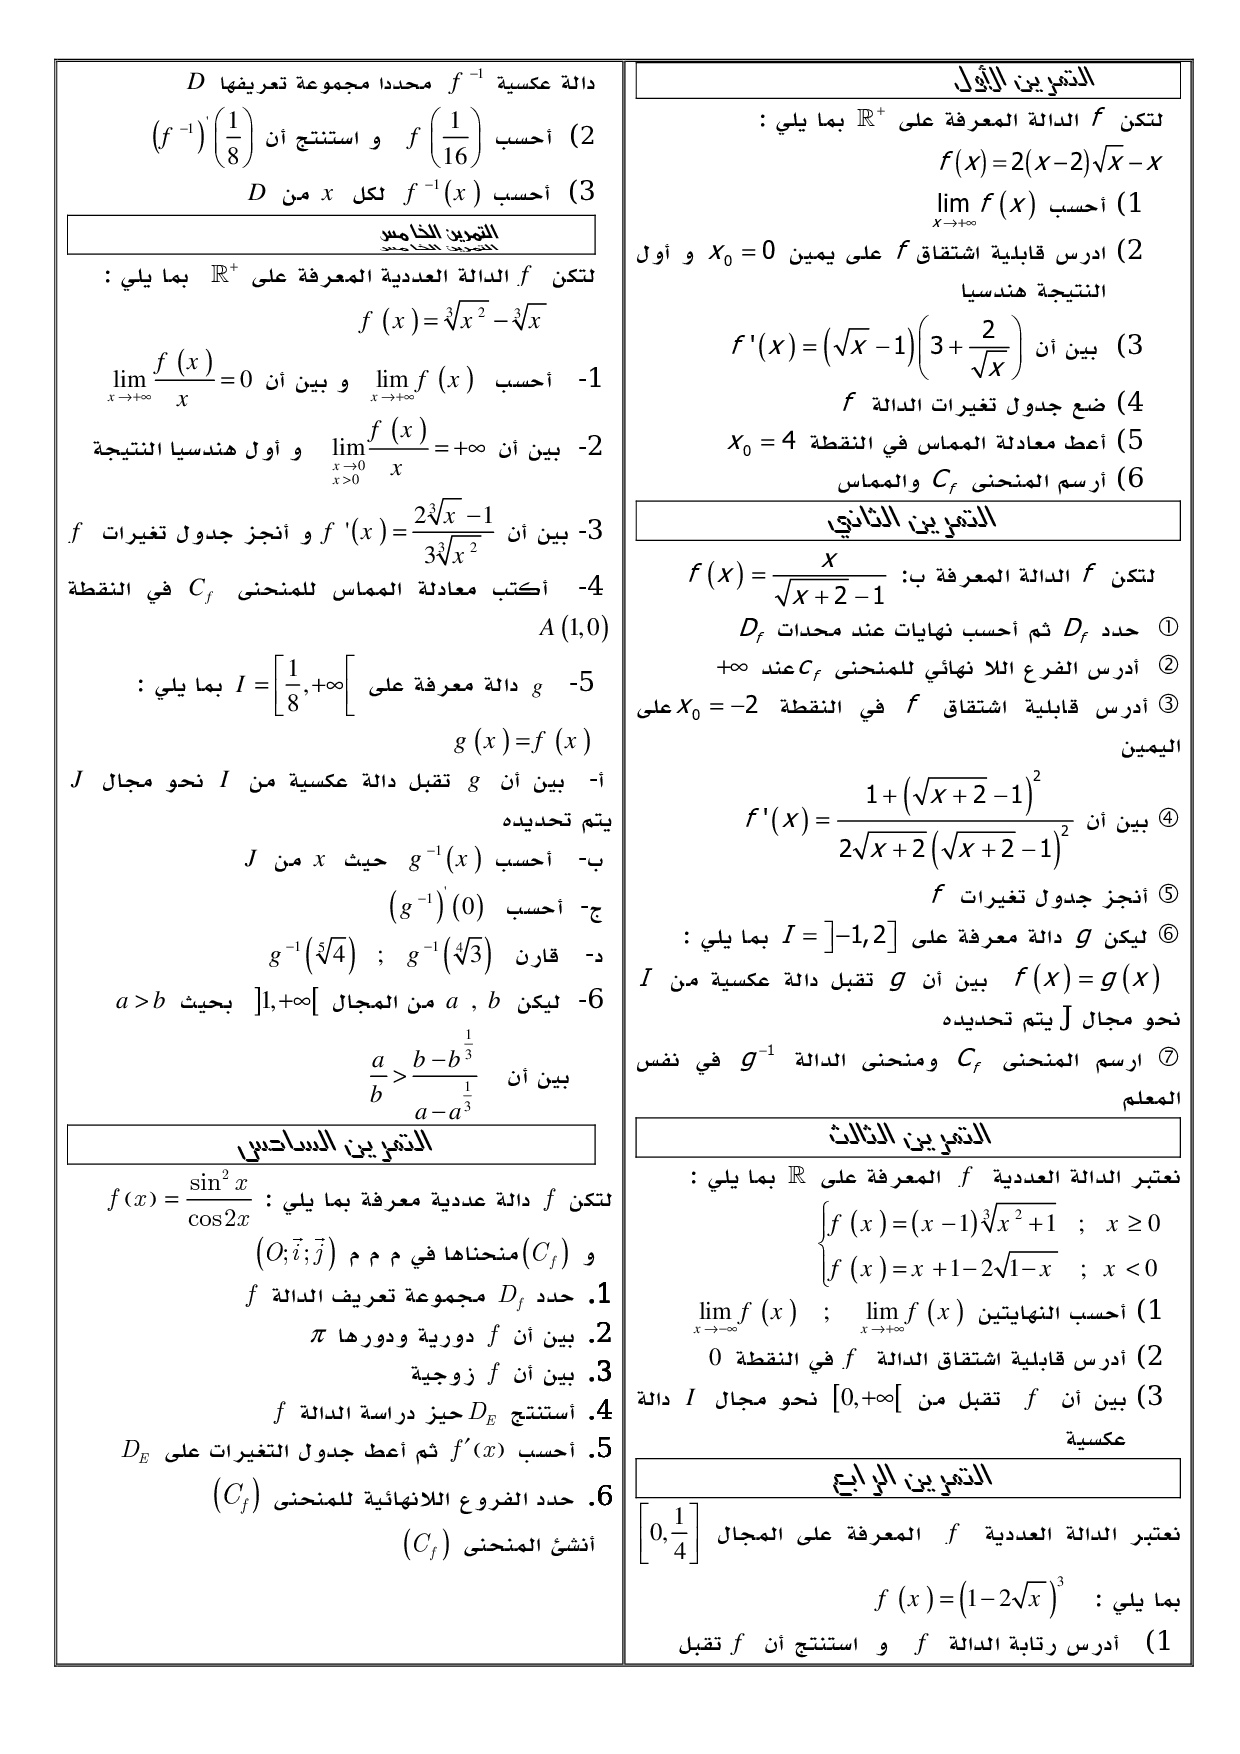 التمرين الأول
لتكن f الدالة المعرفة على ℝ⁺ بما يلي :
f(x)=2(x−2)√x−x
1) أحسب lim_{x→+∞} f(x)
2) ادرس قابلية اشتقاق f على يمين x₀ = 0 و أول
النتيجة هندسيا
3) بين أن f'(x)=(√x−1)(3+2/√x)
4) ضع جدول تغيرات الدالة f
5) أعط معادلة المماس في النقطة x₀ = 4
6) أرسم المنحنى C_f والمماس
التمرين الثاني
لتكن f الدالة المعرفة ب: f(x)=x/(√(x+2)−1)
① حدد D_f ثم أحسب نهايات عند محدات D_f
② أدرس الفرع اللا نهائي للمنحنى c_f عند +∞
③ أدرس قابلية اشتقاق f في النقطة x₀ = −2 على
اليمين
④ بين أن f'(x)=(1+(√(x+2)−1)²)/(2√(x+2)(√(x+2)−1)²)
⑤ أنجز جدول تغيرات f
⑥ ليكن g دالة معرفة على I = ]−1,2] بما يلي :
f(x)=g(x) بين أن g تقبل دالة عكسية من I
نحو مجال J يتم تحديده
⑦ ارسم المنحنى C_f ومنحنى الدالة g⁻¹ في نفس
المعلم
التمرين الثالث
نعتبر الدالة العددية f المعرفة على ℝ بما يلي :
{f(x)=(x−1)∛(x²+1) ; x≥0
f(x)=x+1−2√(1−x) ; x<0
1) أحسب النهايتين lim_{x→+∞} f(x) ; lim_{x→−∞} f(x)
2) أدرس قابلية اشتقاق الدالة f في النقطة 0
3) بين أن f تقبل من [0,+∞[ نحو مجال I دالة
عكسية
التمرين الرابع
نعتبر الدالة العددية f المعرفة على المجال [0,1/4]
بما يلي : f(x)=(1−2√x)³
1) أدرس رتابة الدالة f و استنتج أن f تقبل
دالة عكسية f⁻¹ محددا مجموعة تعريفها D
2) أحسب f(1/16) و استنتج أن (f⁻¹)'(1/8)
3) أحسب f⁻¹(x) لكل x من D
التمرين الخامس
لتكن f الدالة العددية المعرفة على ℝ⁺ بما يلي :
f(x)=∛(x²)−∛x
1- أحسب lim_{x→+∞} f(x) و بين أن lim_{x→+∞} f(x)/x = 0
2- بين أن lim_{x→0, x>0} f(x)/x = +∞ و أول هندسيا النتيجة
3- بين أن f'(x)=(2∛x−1)/(3∛(x²)) و أنجز جدول تغيرات f
4- أكتب معادلة المماس للمنحنى C_f في النقطة
A(1,0)
5- g دالة معرفة على I=[1/8,+∞[ بما يلي :
g(x)=f(x)
أ- بين أن g تقبل دالة عكسية من I نحو مجال J
يتم تحديده
ب- أحسب g⁻¹(x) حيث x من J
ج- أحسب (g⁻¹)'(0)
د- قارن g⁻¹(∜3) ; g⁻¹(⁵√4)
6- ليكن a , b من المجال ]1,+∞[ بحيث a>b
بين أن a/b > (b−b^(1/3))/(a−a^(1/3))
التمرين السادس
لتكن f دالة عددية معرفة بما يلي : f(x)=sin²x/cos2x
و (C_f) منحناها في م م م (O;i⃗;j⃗)
1. حدد D_f مجموعة تعريف الدالة f
2. بين أن f دورية ودورها π
3. بين أن f زوجية
4. أستنتج D_E حيز دراسة الدالة f
5. أحسب f′(x) ثم أعط جدول التغيرات على D_E
6. حدد الفروع اللانهائية للمنحنى (C_f)
أنشئ المنحنى (C_f)